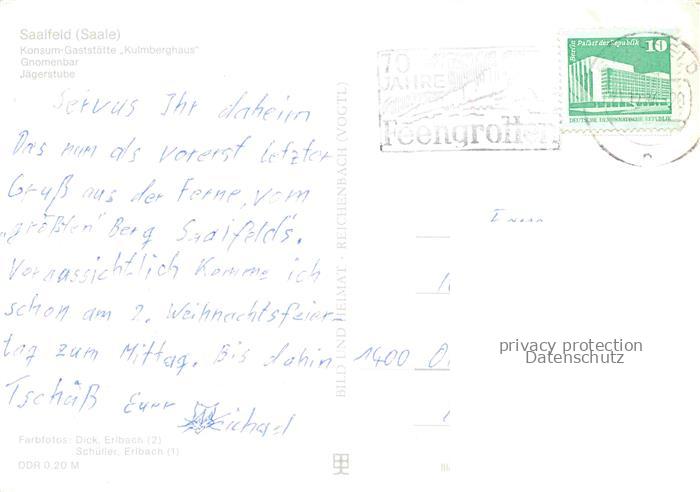 Saalfeld (Saale)
Konsum-Gaststätte „Kulmberghaus"
Gnomenbar
Jägerstube
Servus Ihr daheim
Das nun als vorerst letzter
Gruß aus der Ferne, vom
„größten" Berg Saalfelds.
Voraussichtlich komme ich
schon am 2. Weihnachtsfeier=
tag zum Mittag. Bis dahin
Tschüß Euer Michael
Farbfotos: Dick, Erlbach (2)
Schüller, Erlbach (1)
DDR 0.20 M
BILD UND HEIMAT · REICHENBACH (VOGTL)
70
JAHRE
Feengrotten
Berlin Palast der Republik 10
DEUTSCHE DEMOKRATISCHE REPUBLIK
1400
privacy protection
Datenschutz